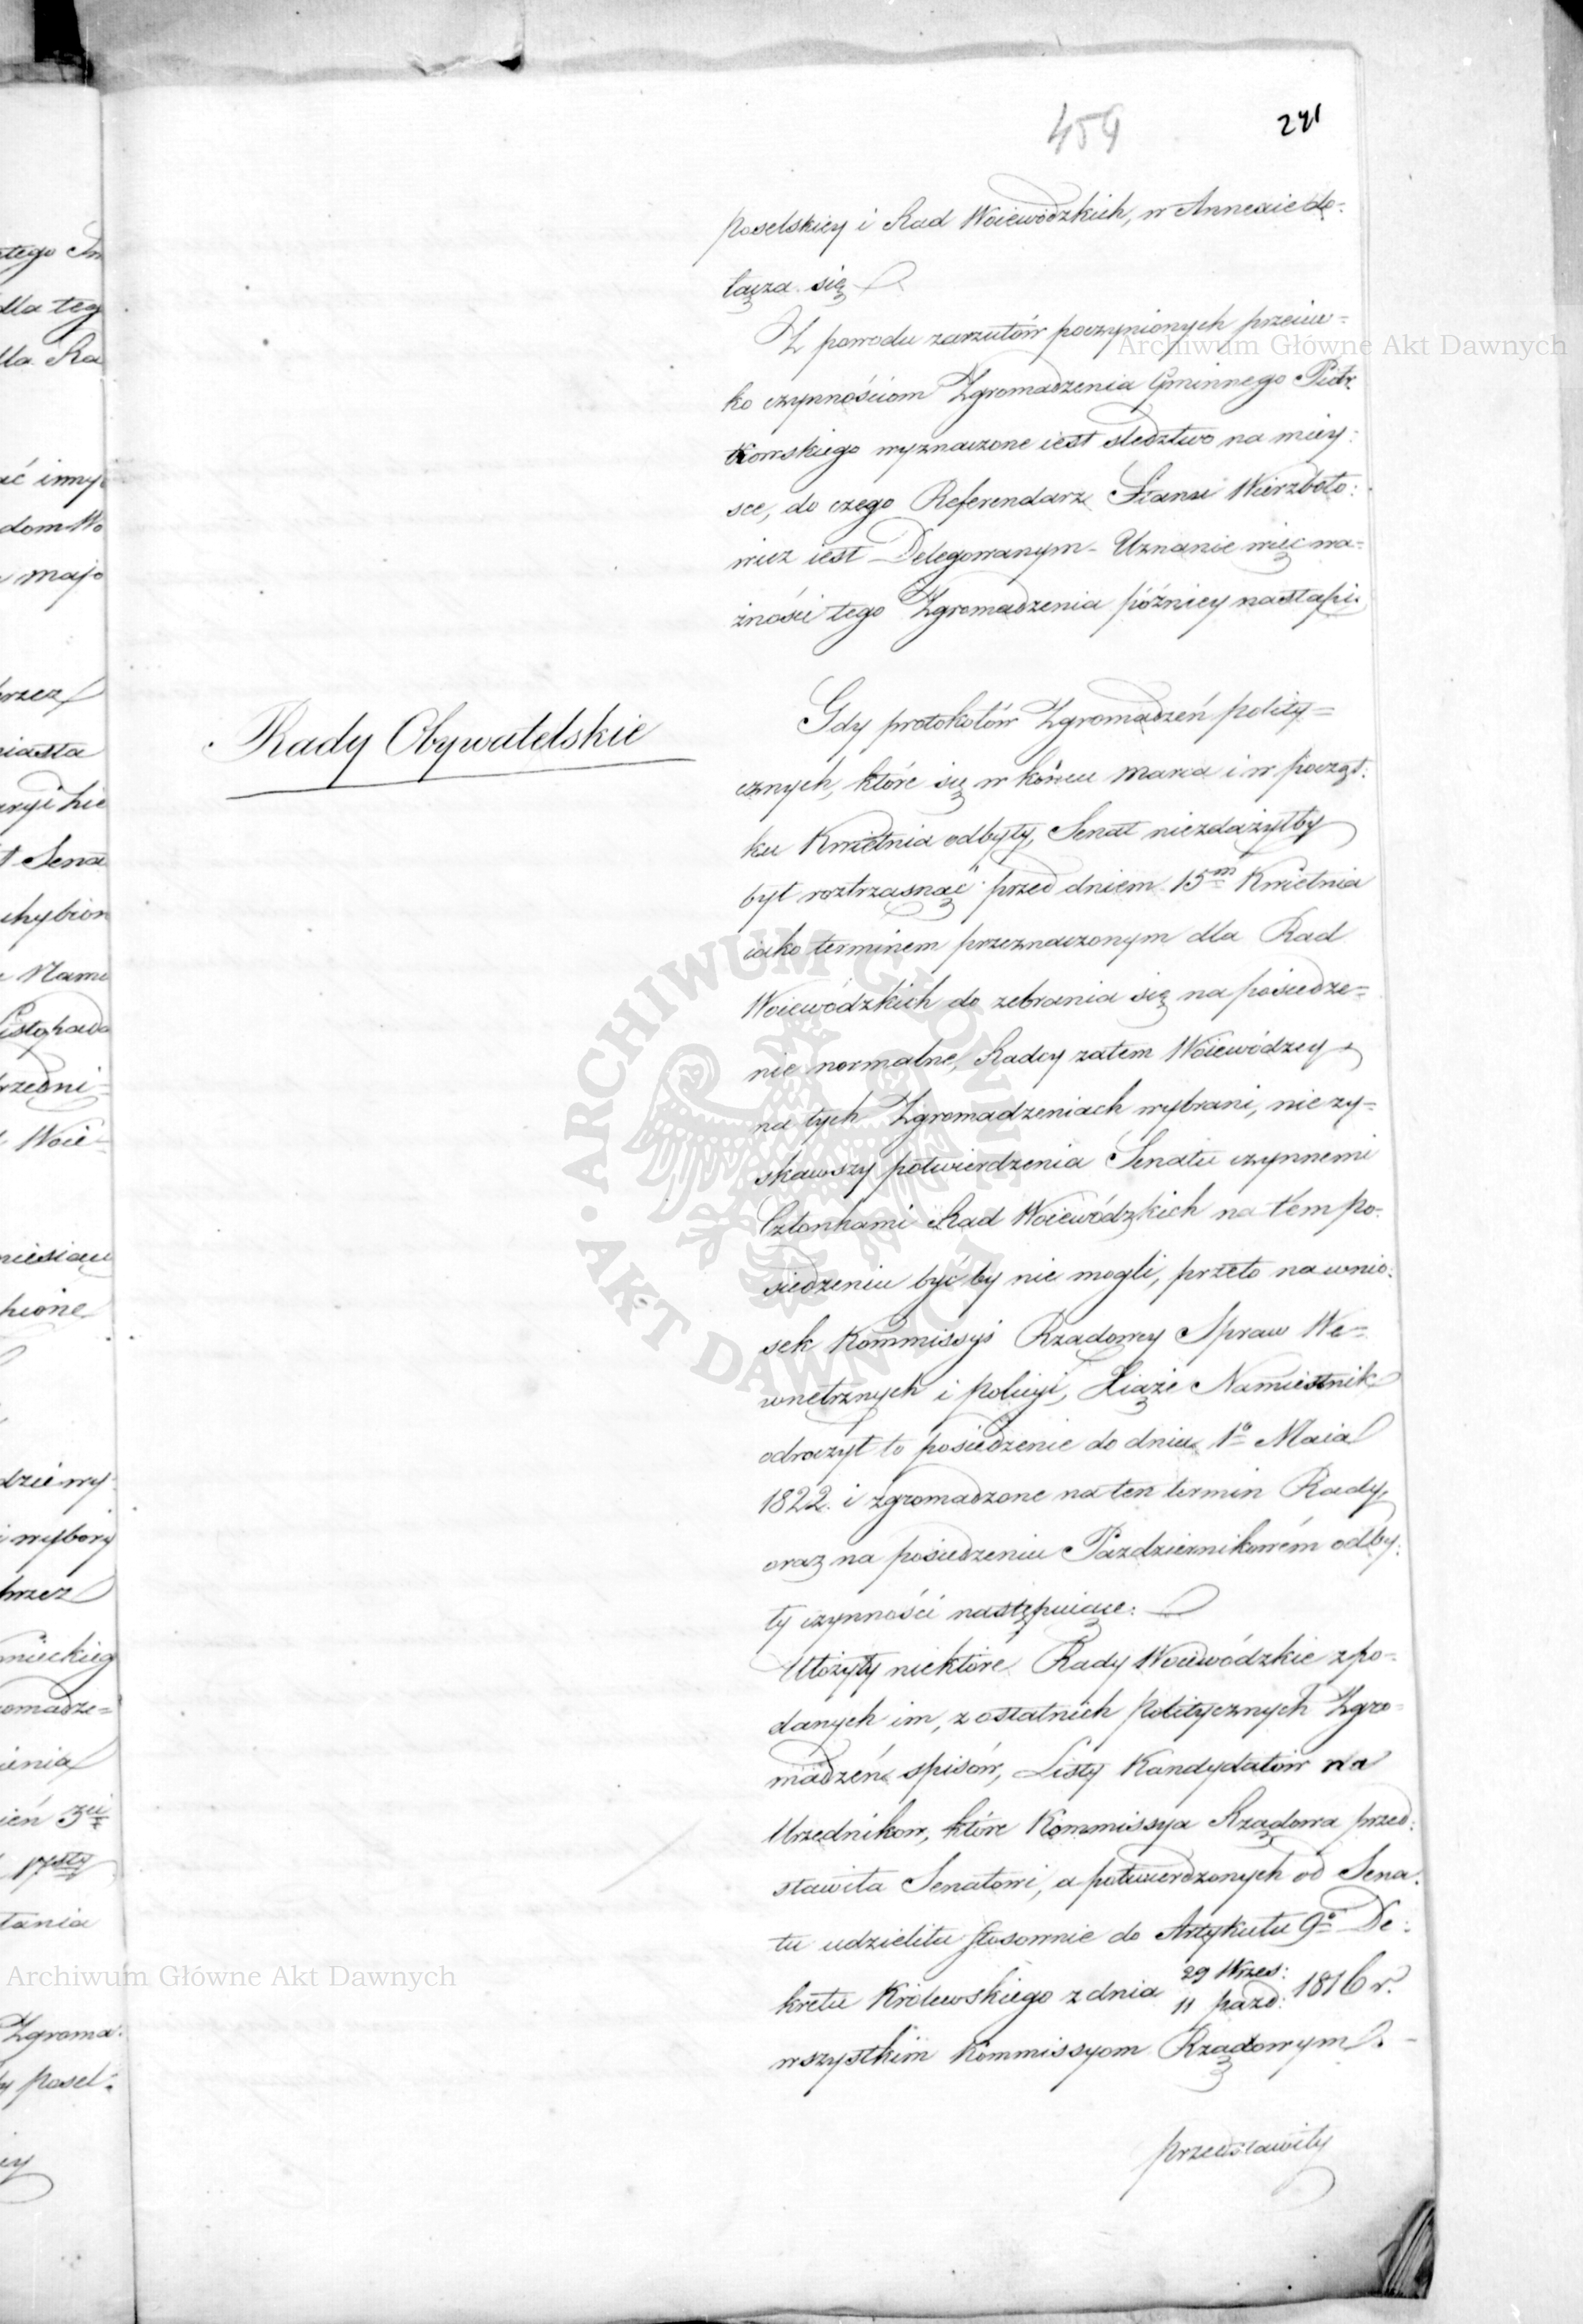 459
241
poselskiey i Rad Woiewódzkich, w Annexie do=
łącza się
Z powodu zarzutów poczynionych przeciw=
ko czynnościom Zgromadzenia Gminnego Piotr=
kowskiego wyznaczone iest sledztwo na miey=
sce, do czego Referendarz Stanu Wierzboło=
wicz iest Delegowanym - Uznanie więc wa=
żności tego Zgromadzenia późniey nastąpi
Rady Obywatelskie
Gdy protokołów Zgromadzeń polity=
cznych, które się w końcu marca i w począt=
ku Kwietnia odbyły, Senat niezdążyłby
był roztrząsnąć przed dniem 15m Kwietnia
iako terminem przeznaczonym dla Rad
Woiewódzkich do zebrania się na posiedze=
nie normalne, Radcy zatem Woiewódzcy
na tych Zgromadzeniach wybrani, nie zy=
skawszy potwierdzenia Senatu czynnemi
Członkami Rad Woiewódzkich na tem po=
siedzeniu być by nie mogli, przeto na wnio=
sek Kommissyi Rządowey Spraw We=
wnętrznych i policyi, Xiąże Namiestnik
odroczył to posiedzenie do dnia 1o Maia
1822. i zgromadzone na ten termin Rady,
oraz na posiedzeniu Pazdziernikowém odby=
ły czynności następuiące.
Ułożyły niektóre Rady Woiewódzkie z po=
danych im, z ostatnich politycznych Zgro=
madzeń spisów, Listy Kandydatów na
Urzędnikow, które Kommissya Rządowa przed=
stawiła Senatowi, a potwierdzonych od Sena=
tu udzieliła stosownie do Artykułu 9o De=
kretu Królewskiego z dnia 29 Wrzes: 11 pazd: 1816 r.
wszystkim Kommissyom Rządowym.
przedstawiły
Archiwum Główne Akt Dawnych
Archiwum Główne Akt Dawnych
ARCHIWUM GŁÓWNE AKT DAWNYCH